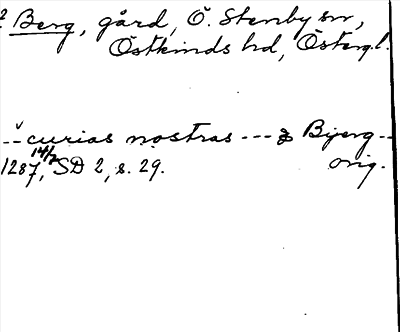 ? Berg, gård, Ö. Stenby sn,
Östkinds hd, Östergl.
-- curias nostras --- & Bijerg --
1287 14/7, SD 2, s. 29. orig.